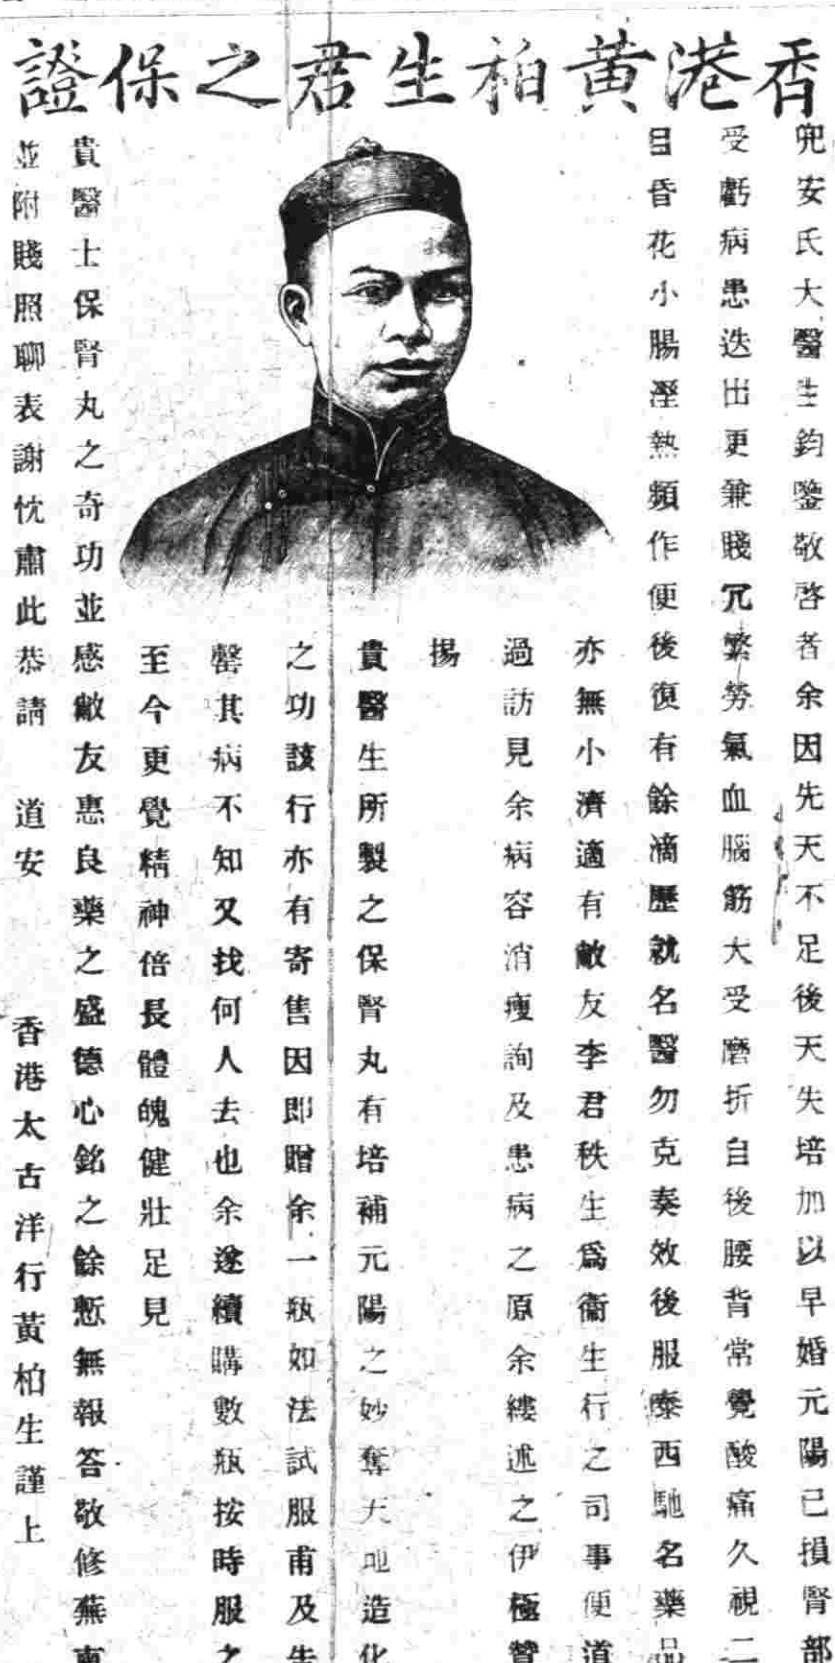 香港黃柏生君之保證
兜安氏大醫生鈞鑒敬啓者余因先天不足後天失培加以早婚元陽已損腎部
受虧病患迭出更兼賤冗繁勞氣血腦筋大受磨折自後腰背常覺酸痛久視二
目昏花小腸溼熱頻作便後復有餘滴歷就名醫勿克奏效後服泰西馳名藥品
亦無小濟適有敝友李君秩生爲衞生行之司事便道
過訪見余病容消瘦詢及患病之原余縷述之伊極贊
揚
貴醫生所製之保腎丸有培補元陽之妙奪天地造化
之功該行亦有寄售因即贈余一瓶如法試服甫及告
罄其病不知又找何人去也余遂續購數瓶按時服之
至今更覺精神倍長體魄健壯足見
貴醫士保腎丸之奇功並感敝友惠良藥之盛德心銘之餘慙無報答敬修蕪
並附賤照聊表謝忱肅此恭請 道安 香港太古洋行黃柏生謹上